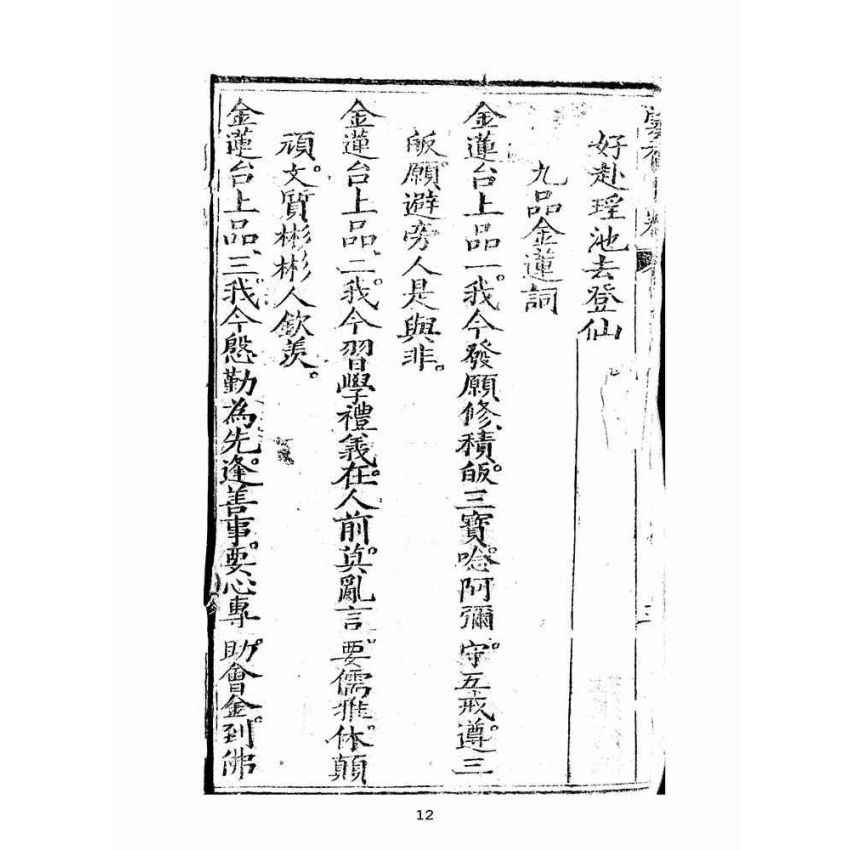 好赴瑶池去登仙
九品金蓮詞
金蓮台上品一。我今發願修積。皈三寶。唸阿彌 守。五戒遵。三
皈願避旁人是與非。
金蓮台上品、二。我今習學禮義。在人前。莫亂言 要。儒雅体。顛
頑。文質彬彬人欽羨。
金蓮台上品、三。我今慇勤為先。逢善事。要心專 助。會金。到佛
三
12